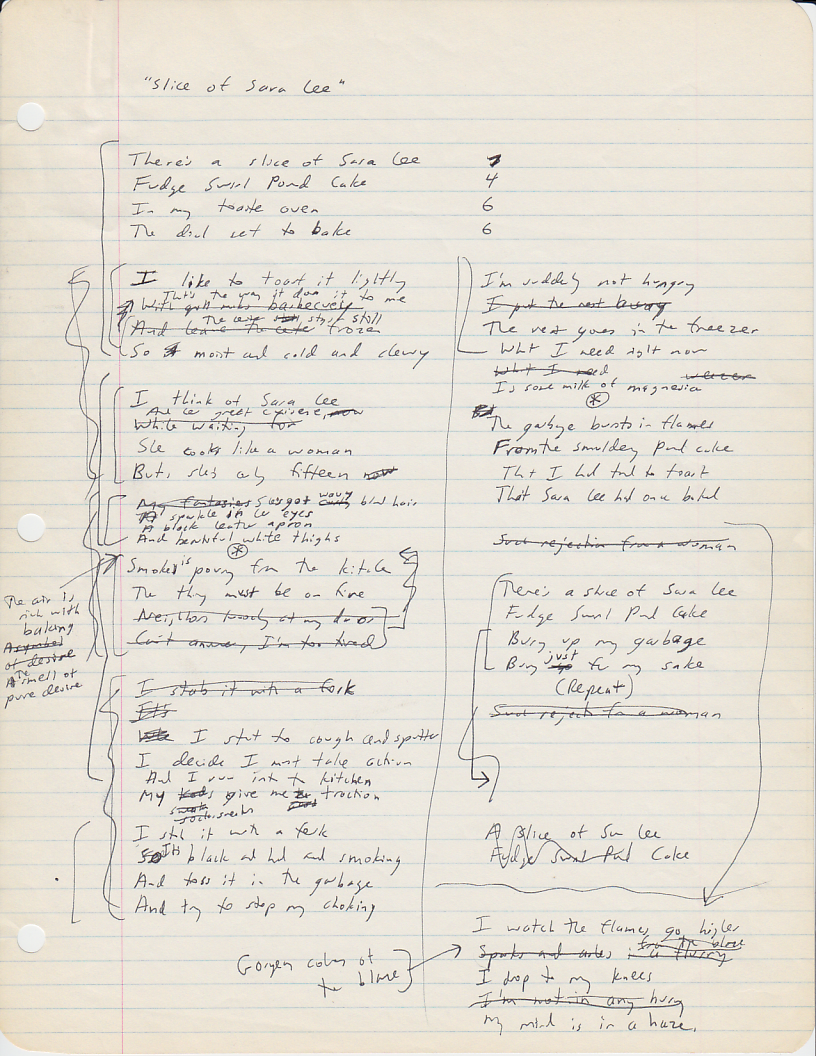 "Slice of Sara Lee"
There's a slice of Sara Lee
Fudge Swirl Pound Cake 4
In my toaste oven 6
The dial set to bake 6
I like to toast it lightly
That's the way it does it to me
With grill marks barbecuely
The center still
And leave the center frozen
So moist and cold and chewy
I think of Sara Lee
And her great cuisine, now
While waiting for
She looks like a woman
But, she's only fifteen now
My fantasies She's got wavy curly blond hair
A sparkle in her eyes
A black leather apron
And beautiful white thighs
Smoke is pouring from the kitchen
The thing must be on fire
Neighbors knock at my door
Can't answer, I'm too tired
The air is
rich with
baking
A symbol
of desire
The smell of
pure desire
I stab it with a fork
It's
I start to cough and sputter
I decide I must take action
And I run into the kitchen
My give me traction
I stab it with a fork
It's black and hard and smoking
And toss it in the garbage
And try to stop my choking
Gorgeous colors of
the blaze
I'm suddenly not hungry
I put the rest away
The rest goes in the freezer
What I need right now
What I need
Is some milk of magnesia
The garbage bursts in flames
From the smoldering pound cake
That I had tried to toast
That Sara Lee had once baked
Such rejection from a woman
There's a slice of Sara Lee
Fudge Swirl Pound Cake
Burning up my garbage
Burning just for my sake
(Repeat)
Such rejection from a woman
A slice of Sara Lee
Fudge Swirl Pound Cake
I watch the flames go higher
from the blaze
Sparks and ashes in a flurry
I drop to my knees
I'm not in any hurry
My mind is in a haze.